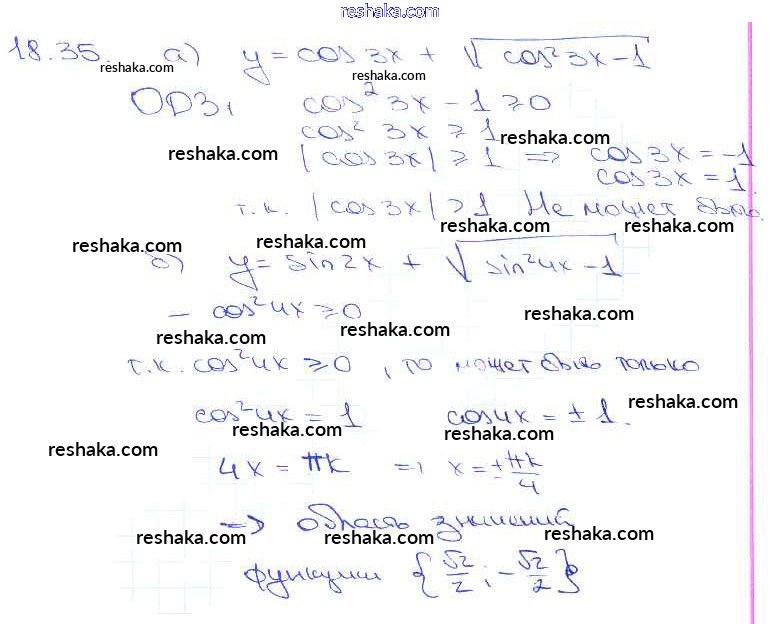 reshaka.com
18.35. а) y = cos 3x + √(cos² 3x − 1)
reshaka.com reshaka.com
ОДЗ: cos² 3x − 1 ≥ 0
cos² 3x ≥ 1 reshaka.com
reshaka.com |cos 3x| ≥ 1 => cos 3x = −1
cos 3x = 1
т.к. |cos 3x| > 1 Не может быть.
reshaka.com reshaka.com reshaka.com
б) y = sin 2x + √(sin² 4x − 1)
− cos² 4x ≥ 0 reshaka.com
reshaka.com reshaka.com
т.к. cos² 4x ≥ 0, то может быть только
cos² 4x = 1 cos 4x = ± 1. reshaka.com
reshaka.com reshaka.com
reshaka.com 4x = πk => x = ± πk/4
=> область значений
reshaka.com reshaka.com reshaka.com
функции {√2/2; −√2/2}